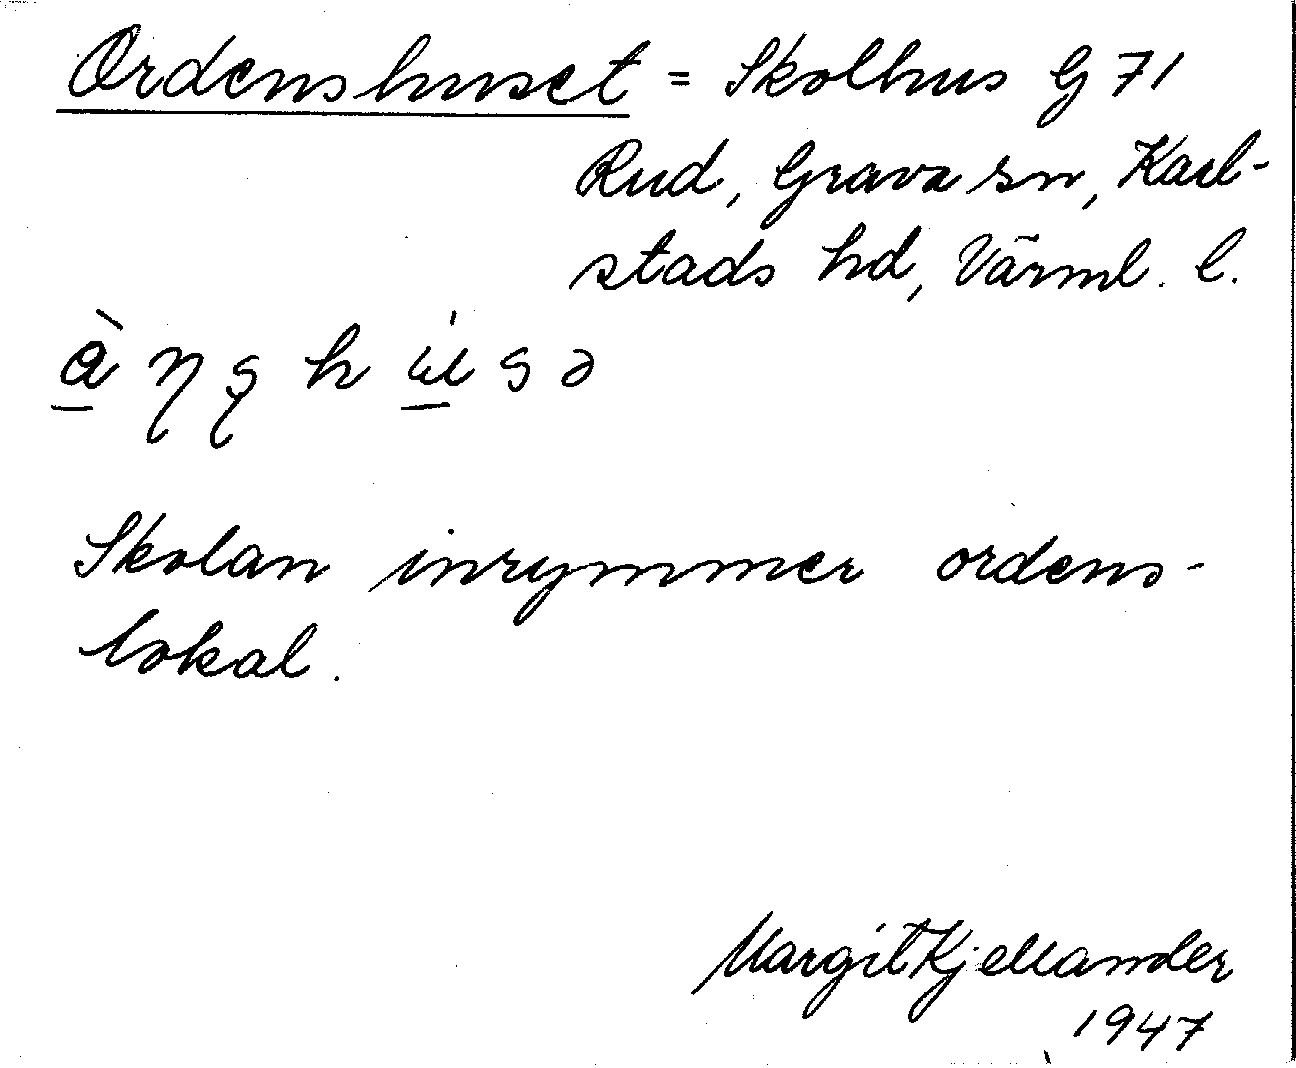 Ordenshuset = Skolhus G 71
Rud, Grava sn, Karl-
stads hd, Värml. l.
Skolan inrymmer ordens-
lokal.
Margit Kjellander
1947